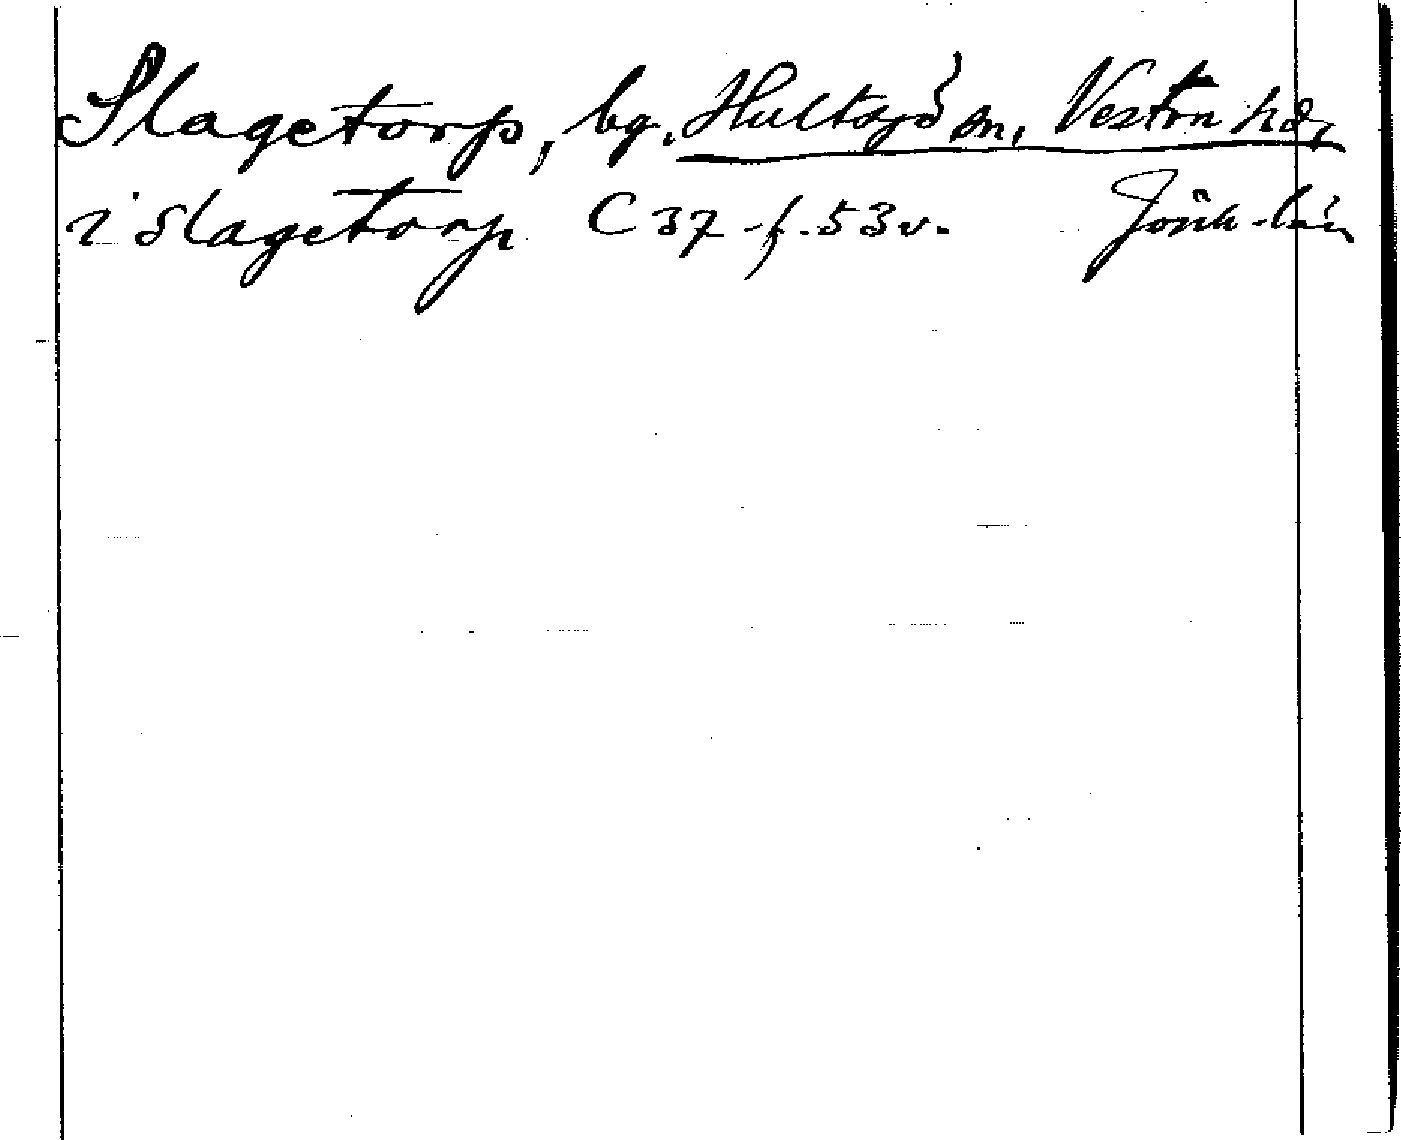 Slagetorp, bg. Hultsjö sn, Vestra hd,
i Slagetorp C 37 f. 53 v. Jönk. län